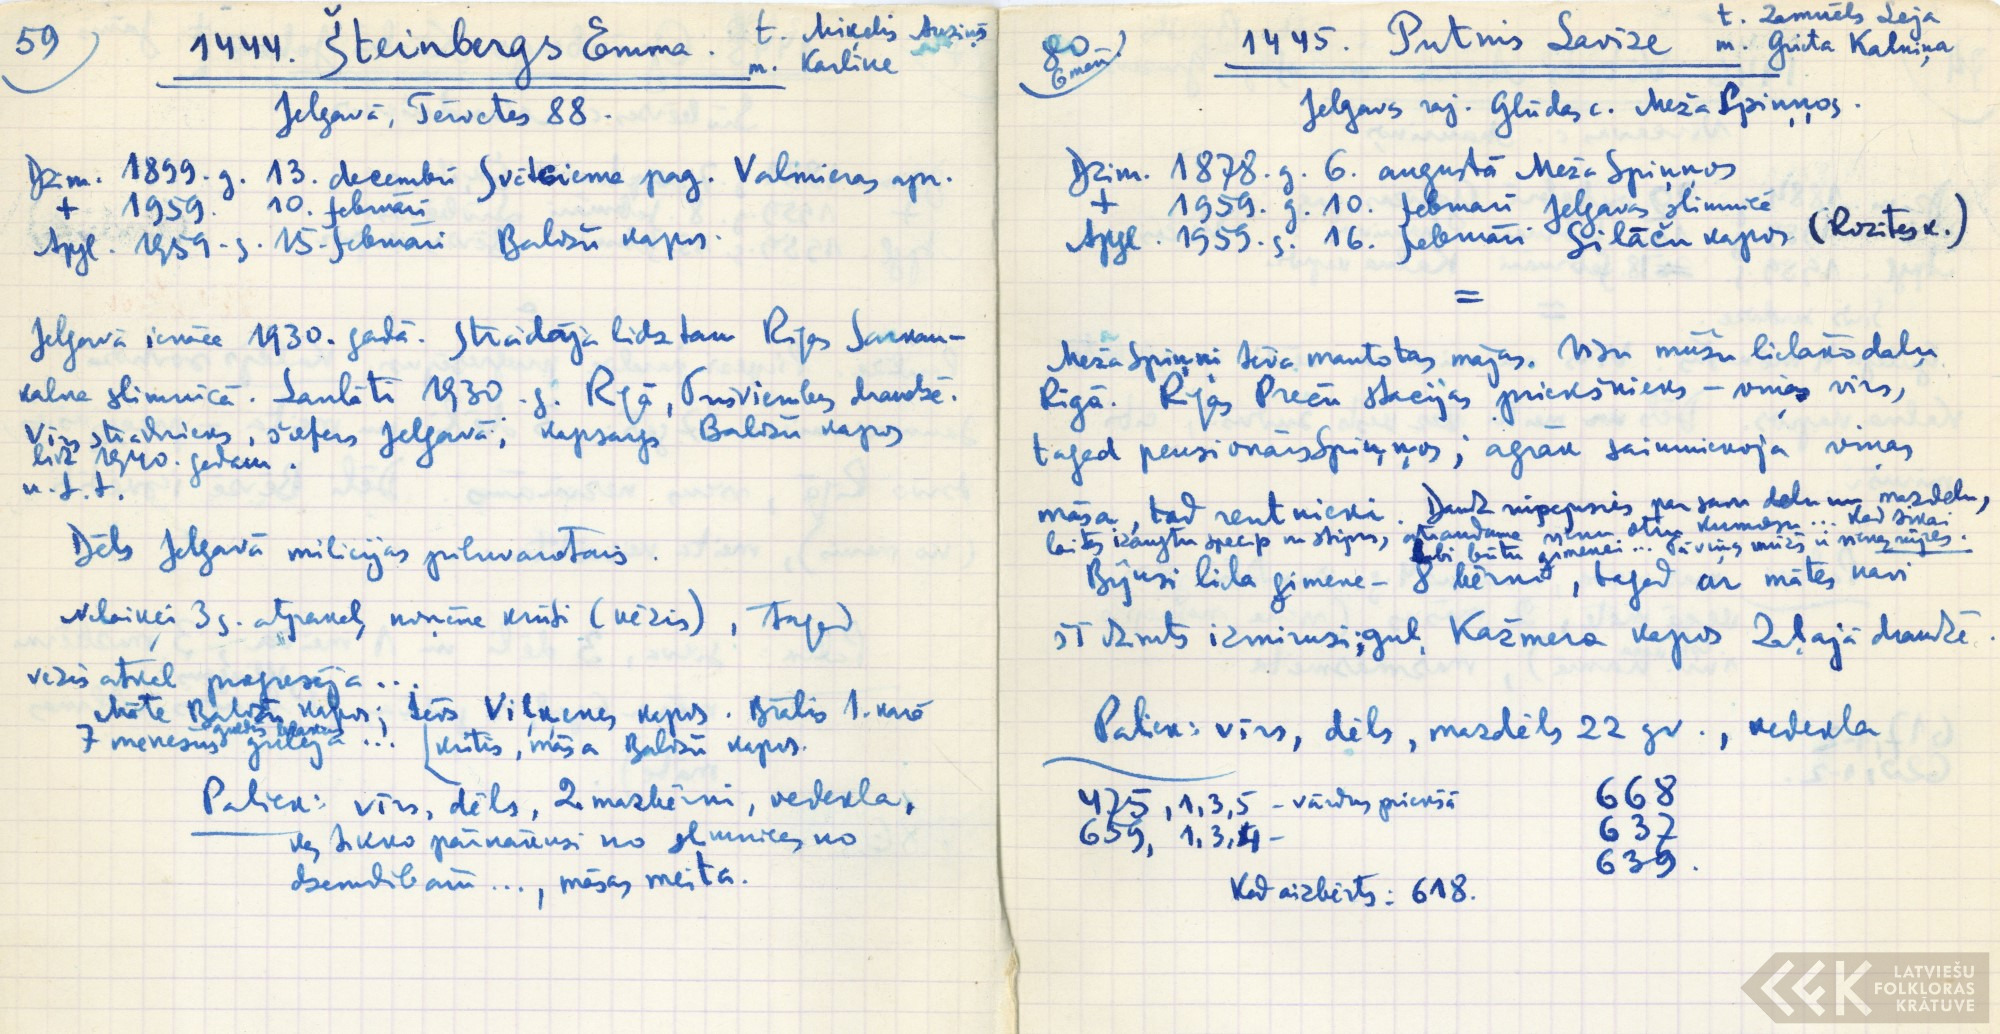 59
1444. Šteinbergs Emma.
t. Miķelis Auziņš
m. Karlīne
Jelgavā, Tērvetes 88.
Dzim. 1899. g. 13. decembrī Svētciema pag. Valmieras apr.
+ 1959. 10. februārī
Apgl. 1959. g. 15. februārī Baložu kapos.
Jelgavā ienāca 1930. gadā. Strādāja līdz tam Rīgas Sarkan-
kalna slimnīcā. Laulāti 1930. g. Rīgā, draudzē.
Vīrs strādnieks, šoferis Jelgavā, kapsargs Baložu kapos
līdz 1940. gadam.
u.t.t.
Dēls Jelgavā milicijas pilnvarotais.
Nelaiķei 3 g. atpakaļ noņēma krūti (vēzis), tagad
vēzis atkal progresēja ...
Māte Baložu kapos; tēvs Viļķenes kapos. Brālis 1. karā
7 mēnešus gulēja ... kritis, māsa Baložu kapos.
Paliek: vīrs, dēls, 2 mazbērni, vedekla,
kas tikko pārnākusi no slimnīcas no
dzemdībām ..., māsas meita.
80
6 mēn.
1445. Putnis Lavīze
t. Zamuēls Leja
m. Grieta Kalniņa
Jelgavas raj. Glūdas c. Meža Spiņņos.
Dzim. 1878. g. 6. augustā Meža Spiņņos
+ 1959. g. 10. februārī Jelgavas slimnīcā
Apgl. 1959. g. 16. februārī Silāču kapos (Rozītes k.)
=
Meža Spiņņi tēva mantotas mājas. Visu mūžu lielāko daļu
Rīgā. Rīgas Preču stacijas priekšnieks – viņas vīrs,
tagad pensionārs Spiņņos; agrāk saimniekoja viņas
māsa, tad rentnieki. Daudz rūpējusies par savu dēlu un mazdēlu,
lai tas izaugtu spēcīgs un stiprs, otru kumosu ... kad tikai
labi būtu ģimenei ... Tā viņas mūžs ir vienas rūpes.
Bijusi liela ģimene – 8 bērni, tagad ar mātes nāvi
šī dzimts izmirusi; guļ Kažmera kapos Zaļajā draudzē.
Paliek: vīrs, dēls, mazdēls 22 gv., vedekla
475, 1,3,5 – vārdus priekšā
659, 1,3,4 –
668
637
639.
Kad aizbērts: 618.
LATVIEŠU
FOLKLORAS
KRĀTUVE